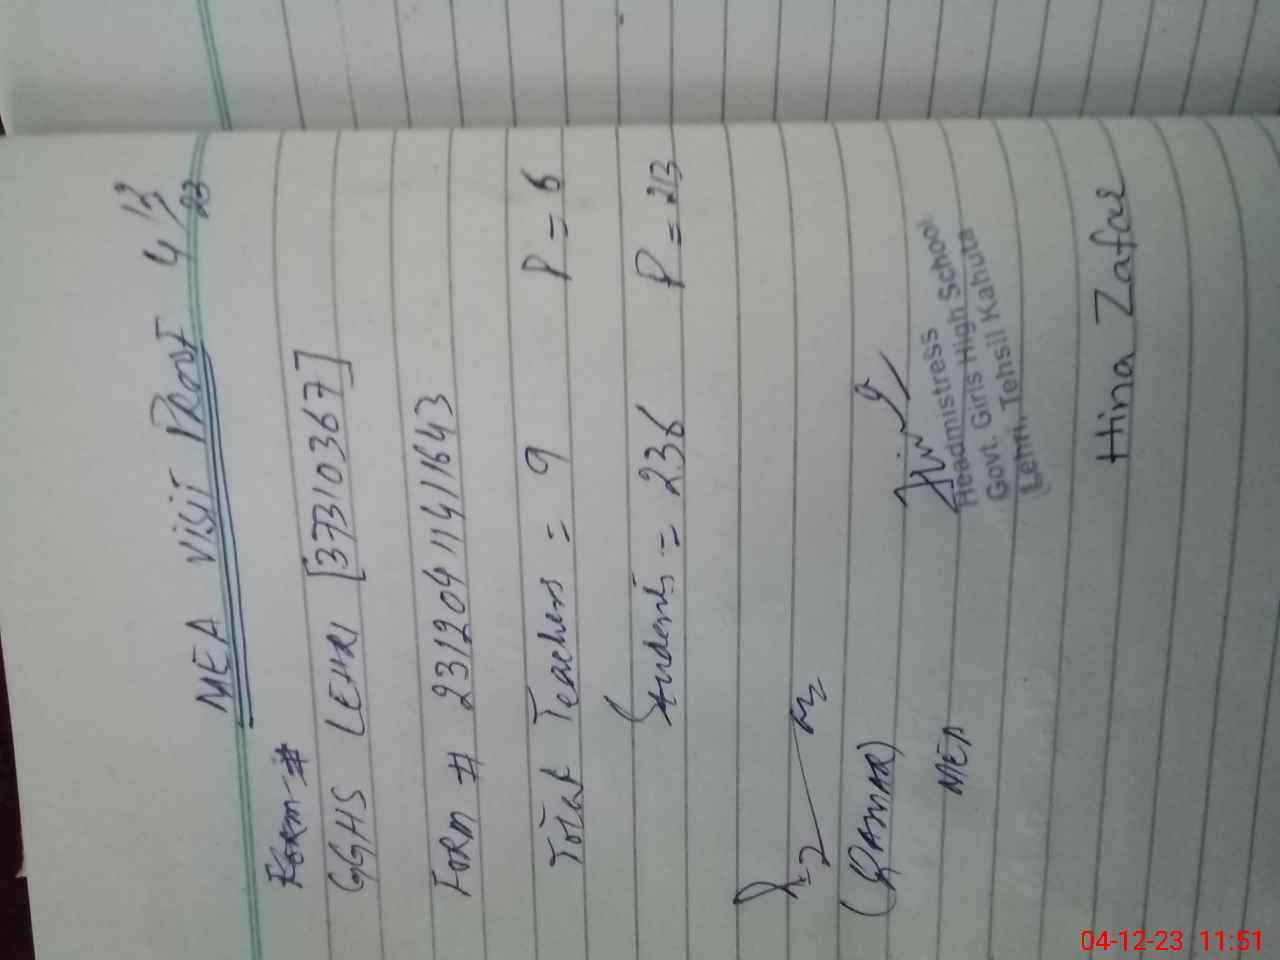 MEA VISIT PROOF 4/12/23
Form #
GGHS LEHRI [37310367]
FORM # 231204114111643
Total Teachers = 9 P = 6
Students = 236 P = 213
(QAMAR)
MEA
Headmistress
Govt. Girls High School
Lehri, Tehsil Kahuta
Hina Zafar
04-12-23 11:51